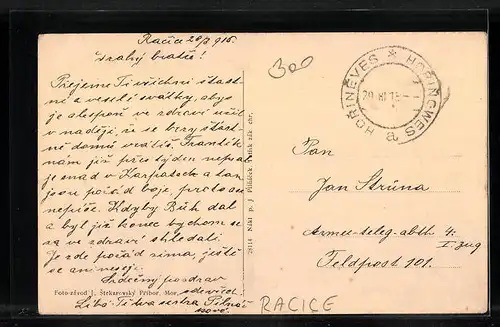 Račice 20/3 915.
Drahý bratře!
Přejeme Ti všichni šťast-
né a veselé svátky, abys
je alespoň ve zdraví užil
v naději, že se brzy šťast-
ně domů vrátíš. František
nám již přes týden nepsal
je snad v Karpatech a tam
jsou pořád boje, proto asi
nepíše. Kdyby Bůh dal
a byl již konec bychom se
sa ve zdraví shledali.
Je zde pořád zima, ještě
se ani neseje.
Srdečný pozdrav
Líbá Tě tvá sestra
Foto-závod J. Štekarovský Příbor, Mor.
28114 Nákl. p. J.
300
HOŘINĚVES * HOŘINOWES
Pan
Jan Struna
Armee-teleg-abth 4.
I. Zug
Feldpost 101.
RACICE